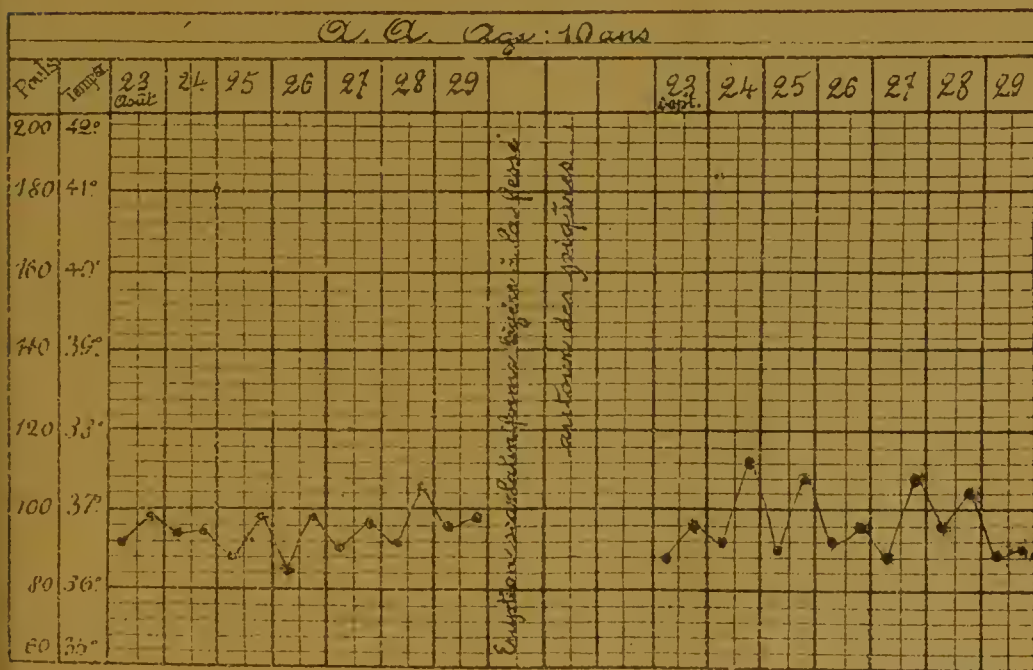 A. A. Age : 10 ans
Pouls Temps
23 24 25 26 27 28 29
Août
23 24 25 26 27 28 29
Sept.
200 42°
180 41°
160 40°
140 39°
120 38°
100 37°
80 36°
60 35°
Eruption scarlatiniforme légère à la fesse
autour des piqûres